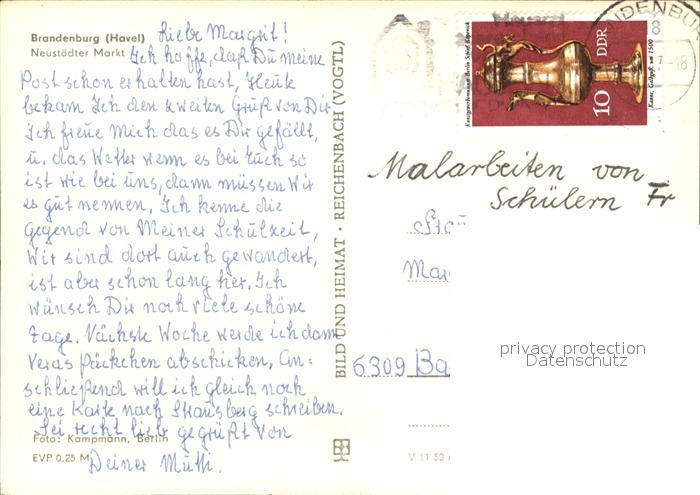 Brandenburg (Havel)
Neustädter Markt
Liebe Margrit!
Ich hoffe, daß Du meine
Post schon erhalten hast, Heute
bekam Ich den zweiten Gruß von Dir
Ich freue Mich das es Dir gefällt,
u. das Wetter wenn es bei Euch so
ist wie bei uns, dann müssen Wir
es gut nennen. Ich kenne die
gegend von Meiner Schulzeit,
Wir sind dort auch gewandert,
ist aber schon lang her. Ich
wünsch Dir noch viele schöne
Tage. Nächste Woche werde ich dann
Veras Päckchen abschicken, An=
schließend will ich gleich noch
eine Karte nach Strausberg schreiben.
Sei recht lieb gegrüßt von
Deiner Mutti.
Foto: Kampmann, Berlin
EVP 0.25 M
BILD UND HEIMAT · REICHENBACH (VOGTL)
V 11 50
Kunstgewerbemuseum Berlin Schloß Köpenick
10
DDR
Kanne, Goldguß um 1500
-18
Malarbeiten von
Schülern Fr
Frau
Mar
6309 Ba
privacy protection
Datenschutz